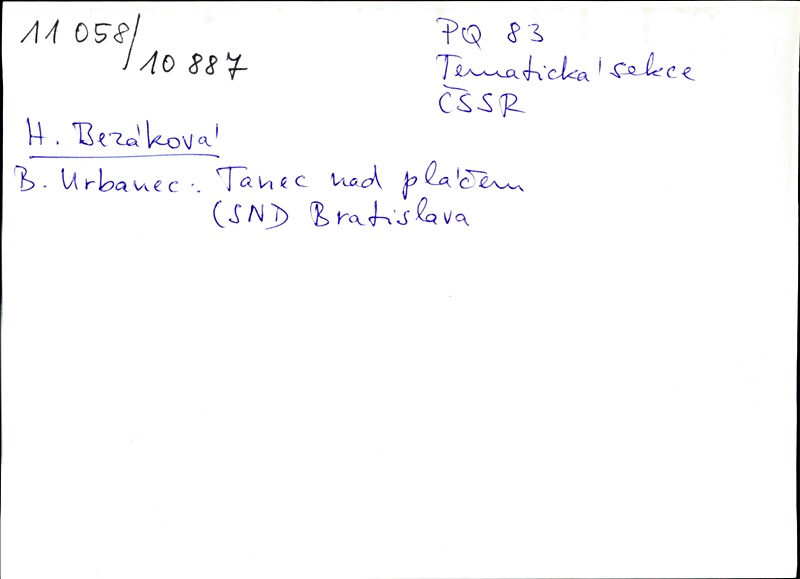 11 058/10 887
PQ 83
Tematická sekce
ČSSR
H. Bezáková
B. Urbanec: Tanec nad pláčem
(SND Bratislava